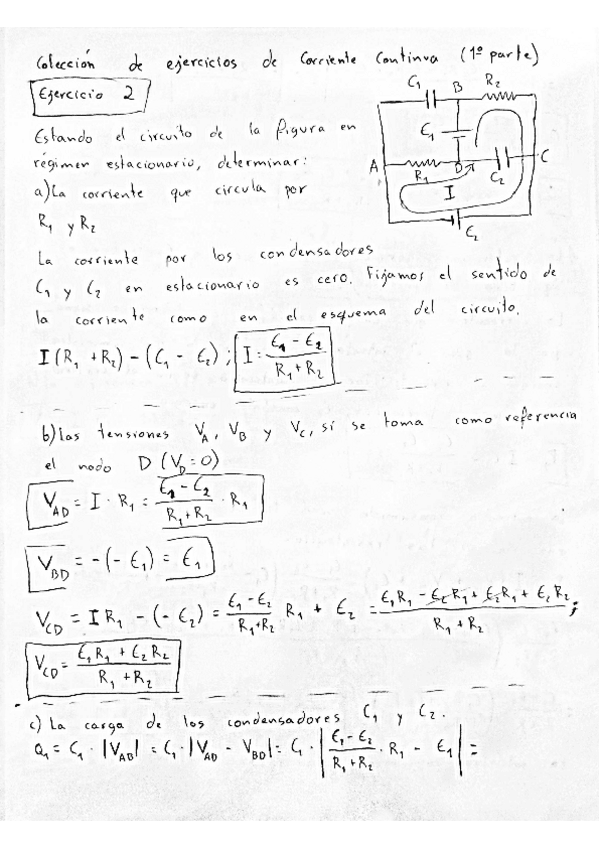 Colección de ejercicios de Corriente Continua (1º parte)
Ejercicio 2
C₁ B R₂
Estando el circuito de la figura en
régimen estacionario, determinar:
a) La corriente que circula por
R₁ y R₂
ε₁
A R₁ D C₂ C
I
ε₂
La corriente por los condensadores
C₁ y C₂ en estacionario es cero. Fijamos el sentido de
la corriente como en el esquema del circuito.
I(R₁ + R₂) - (ε₁ - ε₂) ; I = (ε₁ - ε₂)/(R₁ + R₂)
b) las tensiones V_A, V_B y V_C, sí se toma como referencia
el nodo D (V_D = 0)
V_AD = I · R₁ = (ε₁ - ε₂)/(R₁ + R₂) · R₁
V_BD = -(-ε₁) = ε₁
V_CD = I R₁ - (-ε₂) = (ε₁ - ε₂)/(R₁ + R₂) R₁ + ε₂ = (ε₁R₁ - ε₂R₁ + ε₂R₁ + ε₂R₂)/(R₁ + R₂) ;
V_CD = (ε₁R₁ + ε₂R₂)/(R₁ + R₂)
c) La carga de los condensadores C₁ y C₂.
Q₁ = C₁ · |V_AB| = C₁ · |V_AD - V_BD| = C₁ · |(ε₁ - ε₂)/(R₁ + R₂) · R₁ - ε₁| =